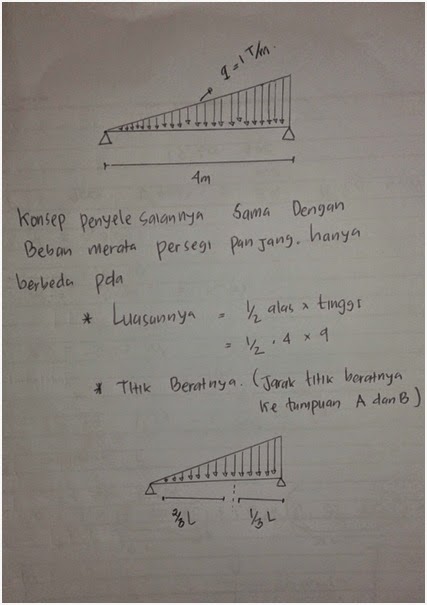 q = 1 T/m.
4m
Konsep penyelesaiannya Sama Dengan
Beban merata persegi panjang. hanya
berbeda pda
* Luasannya = 1/2 alas x tinggi
= 1/2 . 4 x q
* Titik Beratnya. (Jarak titik beratnya
ke tumpuan A dan B)
2/3 L 1/3 L